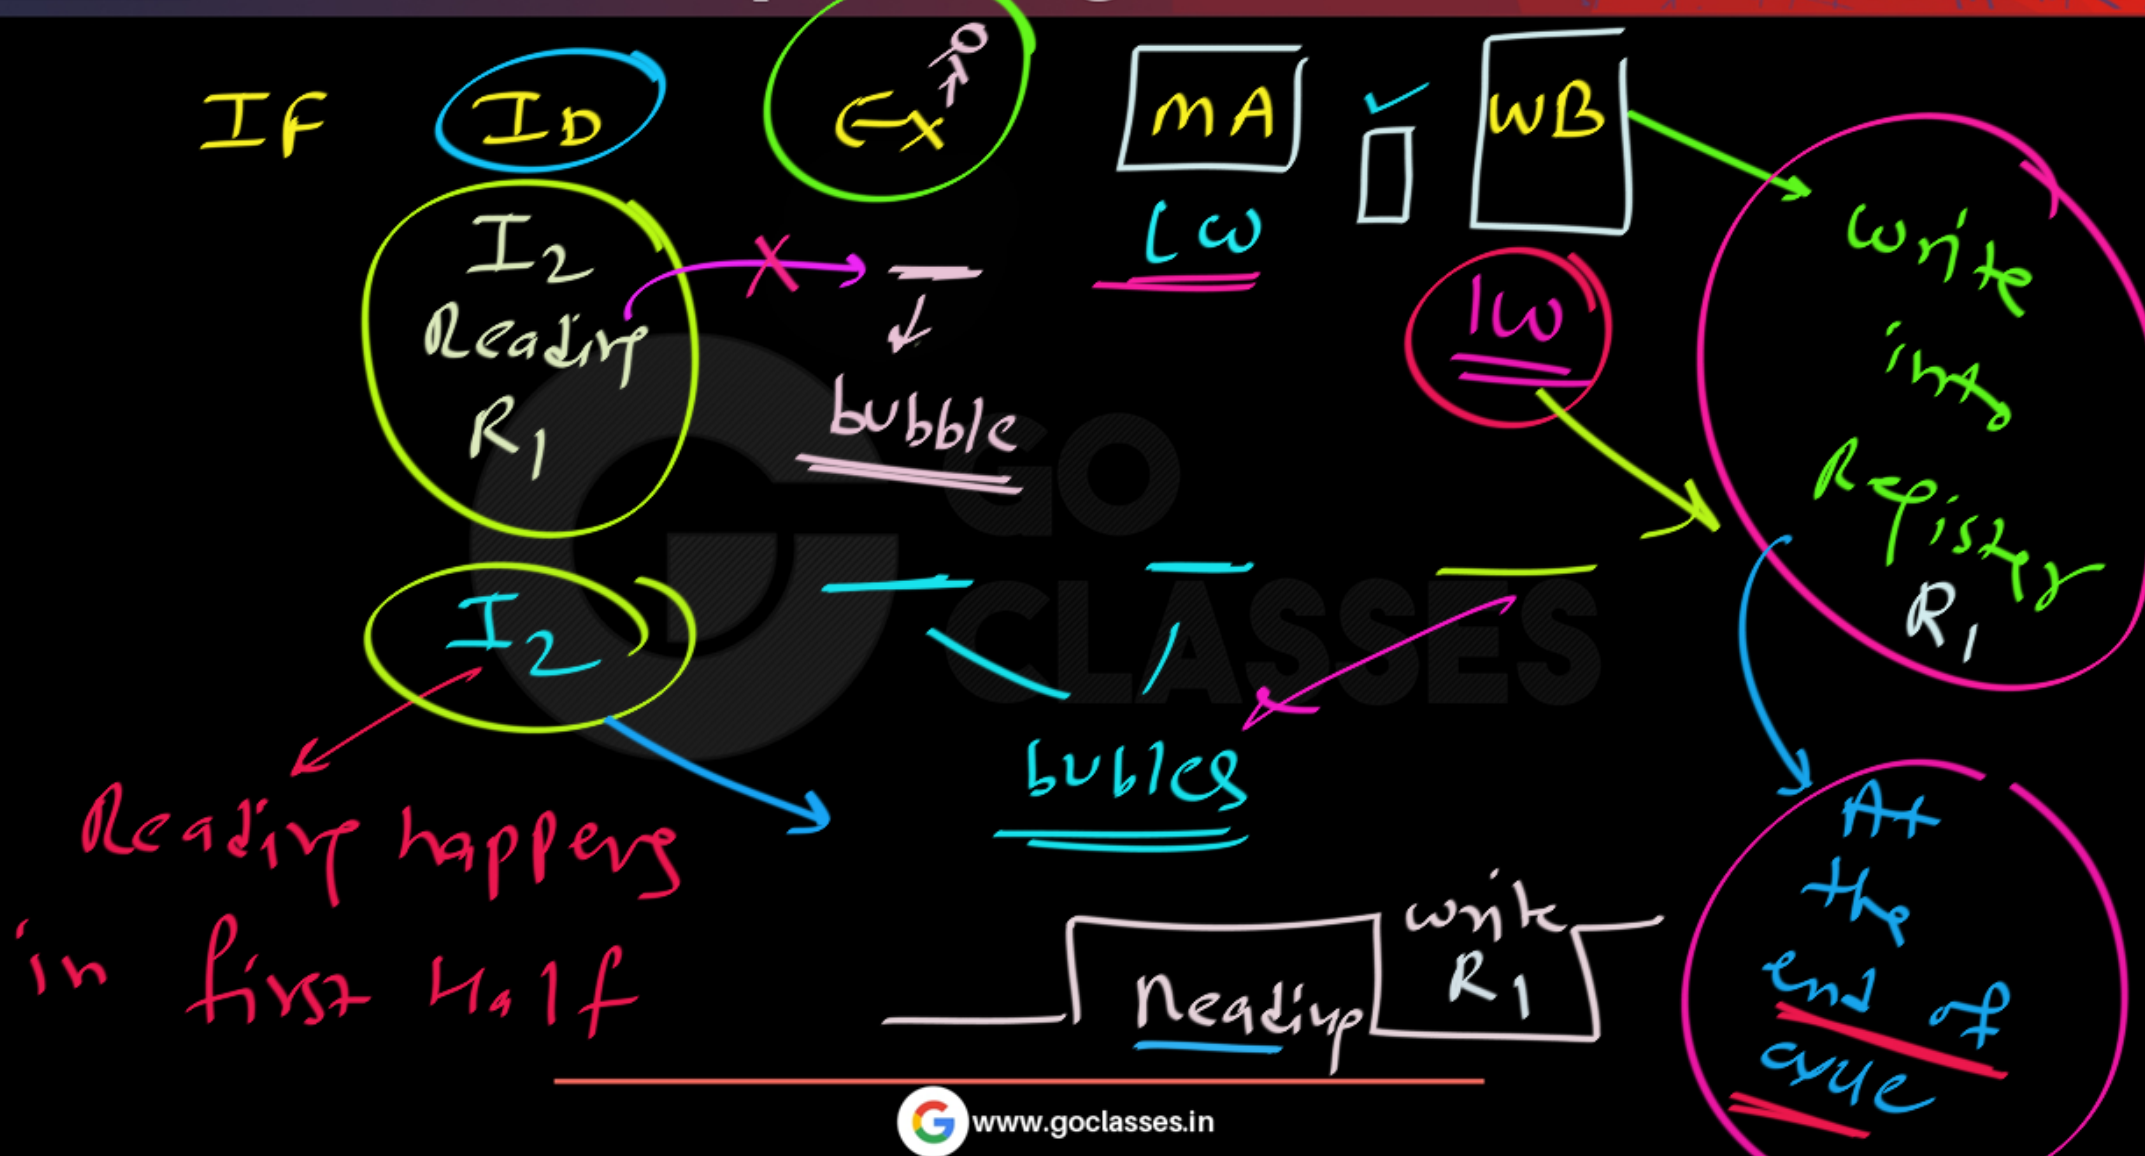 IF ID Ex MA WB
I2
Reading
R1
bubble
lw
lw
Write
into
Register
R1
GO
CLASSES
I2
bubles
Reading happens
in first Half
Reading
write
R1
At
the
end of
cycle
www.goclasses.in